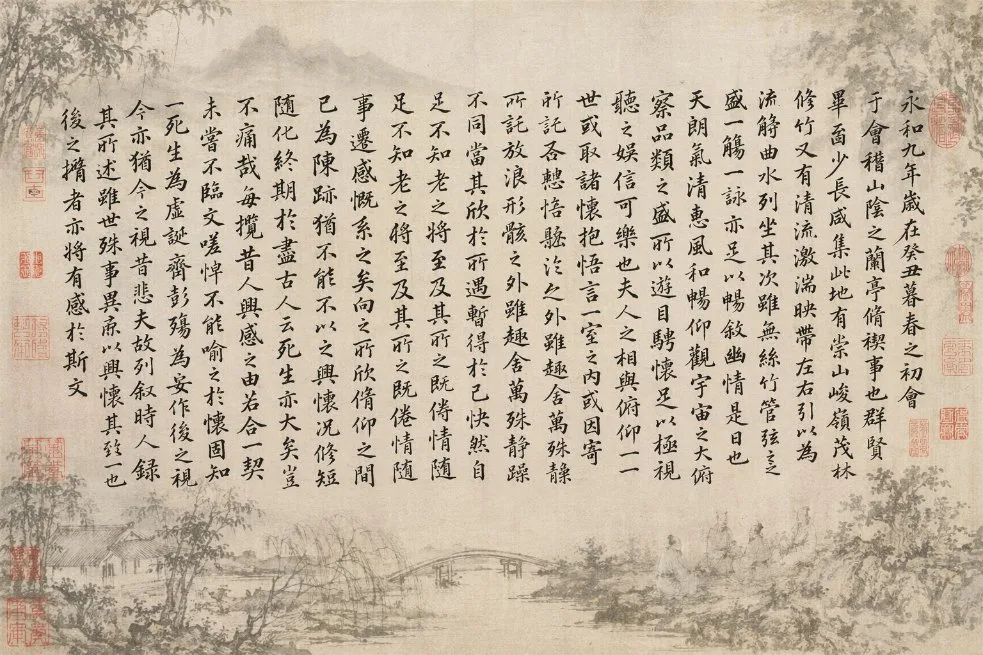 永和九年歲在癸丑暮春之初會
于會稽山陰之蘭亭脩禊事也群賢
畢面少長咸集此地有崇山峻嶺茂林
修竹又有清流激湍映帶左右引以為
流觴曲水列坐其次雖無絲竹管弦之
盛一觴一詠亦足以暢敘幽情是日也
天朗氣清惠風和暢仰觀宇宙之大俯
察品類之盛所以遊目騁懷足以極視
聽之娛信可樂也夫人之相與俯仰一一
世或取諸懷抱悟言一室之內或因寄
所託悟之外雖趣舍萬殊靜
所託放浪形骸之外雖趣舍萬殊静躁
不同當其欣於所遇暫得於己快然自
足不知老之將至及其所之既倦情随
足不知老之将至及其所之既倦情随
事遷感慨系之矣向之所欣脩仰之間
已為陳跡猶不能不以之興懷況修短
随化終期於盡古人云死生亦大矣豈
不痛哉每攬昔人興感之由若合一契
未嘗不臨文嗟悼不能喻之於懷固知
一死生為虛誕齊彭殤為妄作後之視
今亦猶今之視昔悲夫故列叙時人録
其所述雖世殊事異以興懷其一也
後之攬者亦将有感於斯文